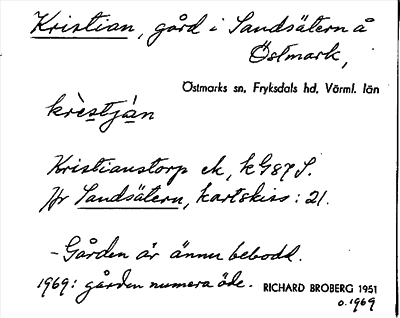 Kristian, gård i Sandsätern å
Östmark,
Östmarks sn, Fryksdals hd, Värml. län
krèstján
Kristianstorp ek, kG87S.
Jfr Sandsätern, kartskiss: 21.
- Gården är ännu bebodd.
1969: gården numera öde. RICHARD BROBERG 1951
o. 1969